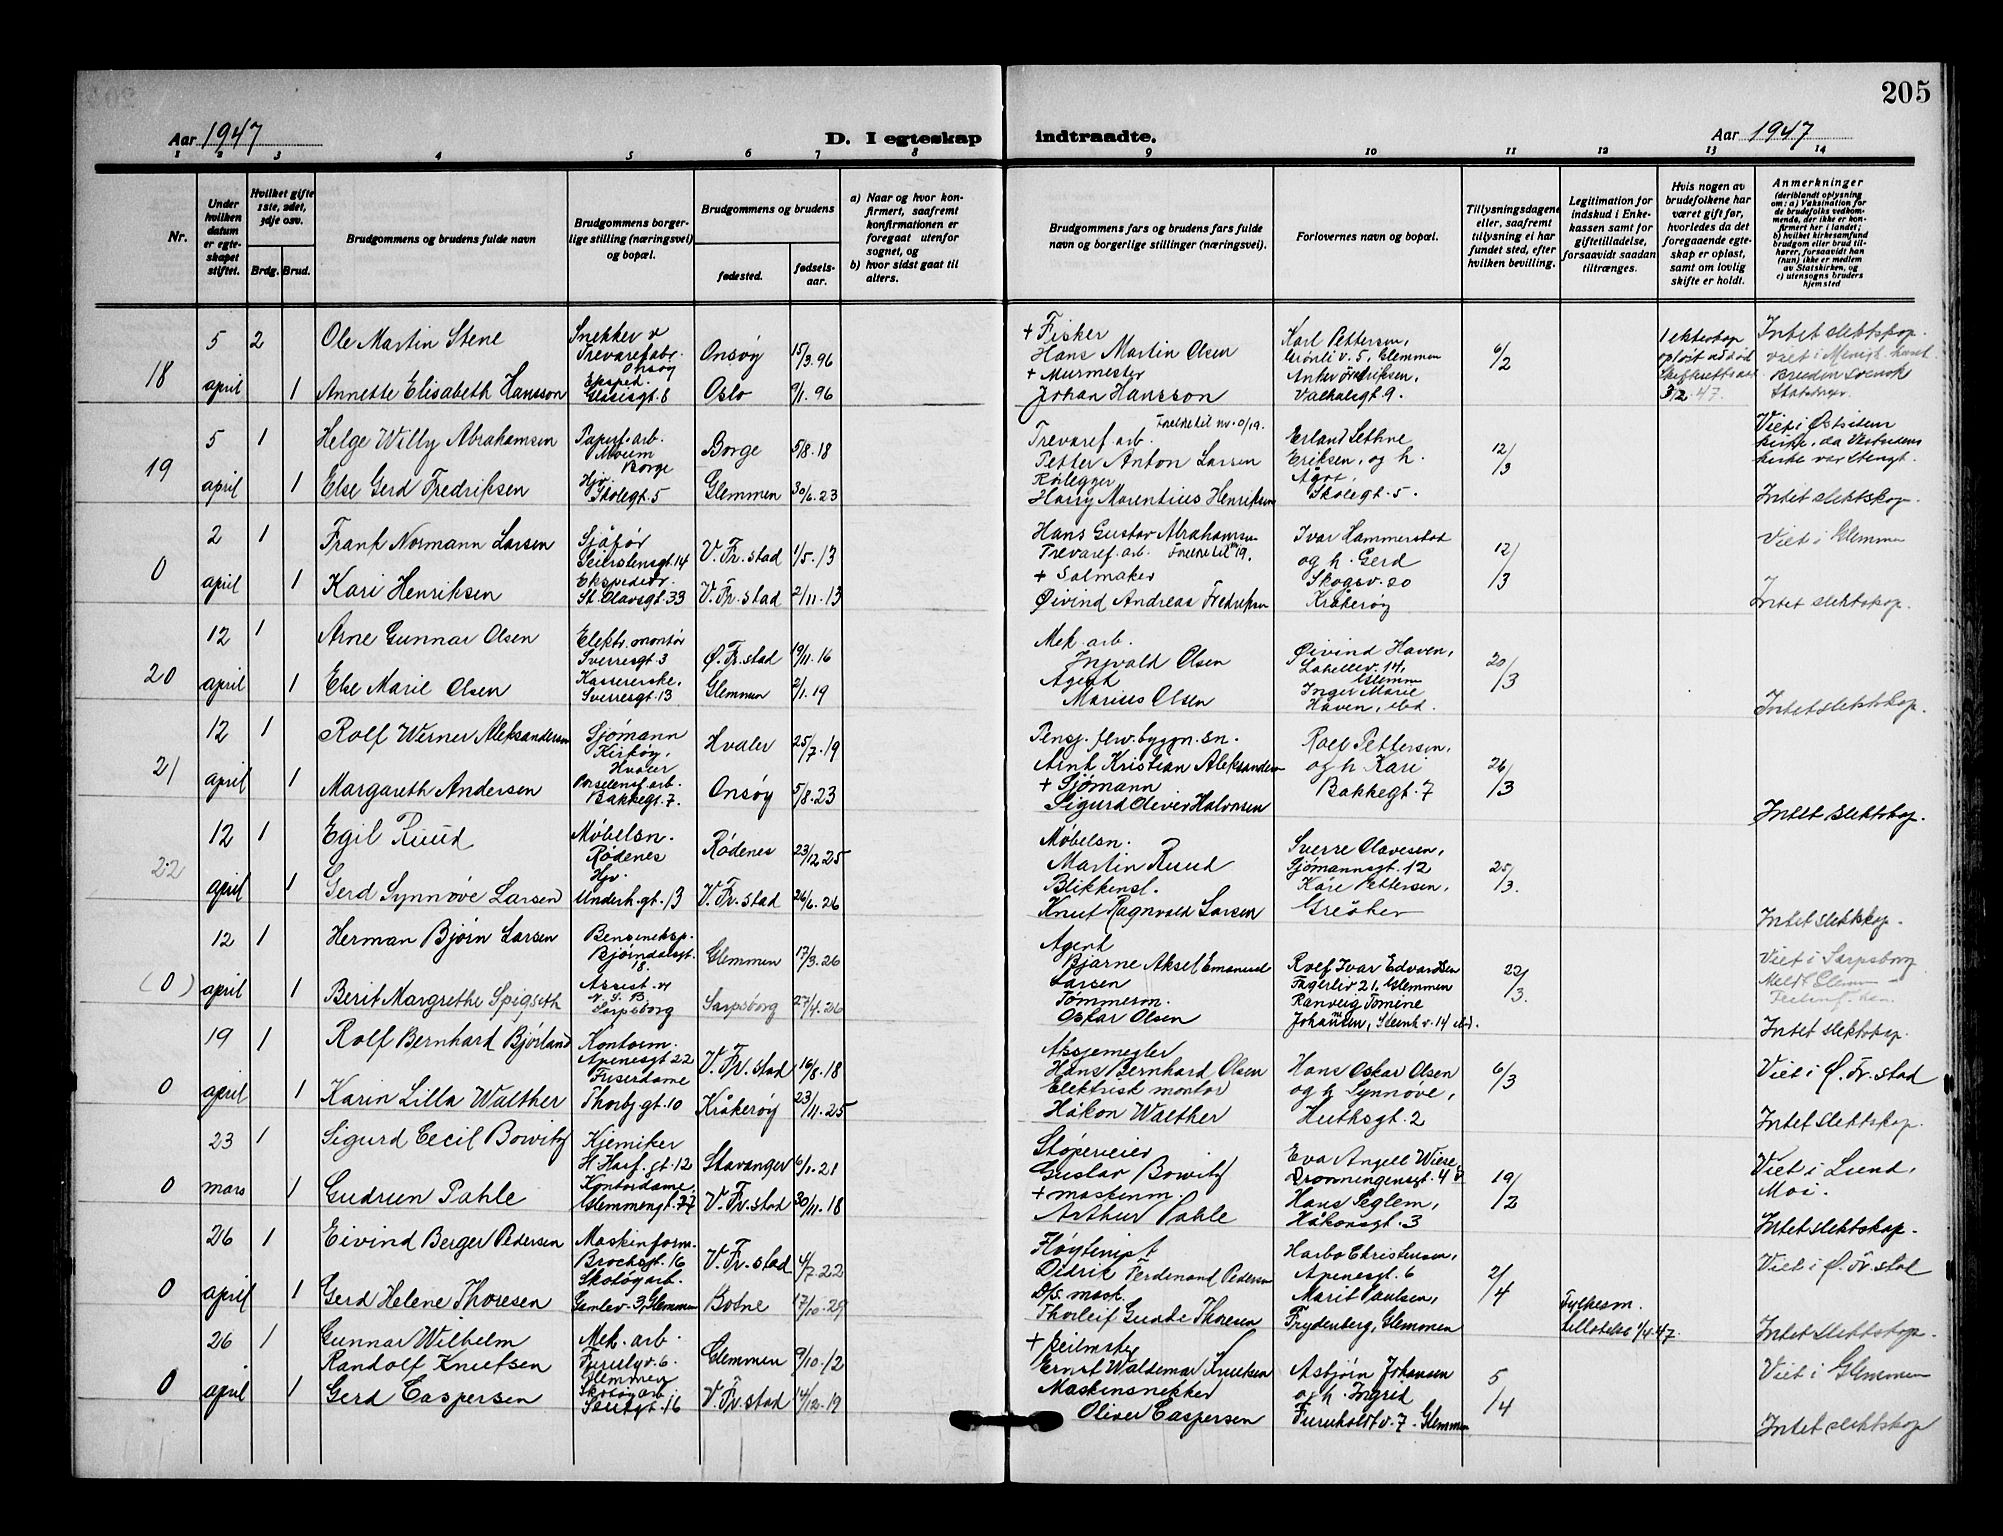 205
Aar 1947
D. I egteskap indtraadte.
Aar 1947
1 2 3 4 5 6 7 8 9 10 11 12 13 14
Nr.
Under hvilken datum er egteskapet stiftet.
Hvilket gifte 1ste, 2det, 3dje osv.
Brdg. Brud.
Brudgommens og brudens fulde navn
Brudgommens borgerlige stilling (næringsvei) og bopæl.
Brudgommens og brudens
fødested.
fødselsaar.
a) Naar og hvor konfirmert, saafremt konfirmationen er foregaat utenfor sognet, og
b) hvor sidst gaat til alters.
Brudgommens fars og brudens fars fulde navn og borgerlige stillinger (næringsvei).
Forlovernes navn og bopæl.
Tillysningsdagene eller, saafremt tillysning ei har fundet sted, efter hvilken bevilling.
Legitimation for indskud i Enkekassen samt for giftetilladelse, forsaavidt saadan tiltrænges.
Hvis nogen av brudefolkene har været gift før, hvorledes da det foregaaende egteskap er opløst, samt om lovlig skifte er holdt.
Anmerkninger
(deriblandt oplysning om: a) Vaksination for de brudefolks vedkommende, der ikke er konfirmert her i landet; b) hvilket kirkesamfund brudgom eller brud tilhører, forsaavidt han (hun) ikke er medlem av Statskirken, og c) utensogns bruders hjemsted
18
5 april
2
Ole Martin Stene
Snekker v Trevarefabr. Onsøy
Onsøy
15/3.96
+ Fisker
Hans Martin Olsen
Karl Pettersen,
Grønli v. 5, Glemmen
6/2
Intet slektskap.
1
Annette Elisabeth Hansson
Eksped.
Oslo
9/1.96
+ Murmester
Johan Hansson
Valhalsgt 9.
3/2.47.
19
5 april
1
Helge Willy Abrahamsen
Papirf.arb.
Moum
Borge
Borge
5/8.18
Foreldre til nr. 0/19.
Trevaref. arb.
Petter Anton Larsen
Erland Sethne
Eriksen, og h.
12/3
Viet i Østsidens
kirke, da Vestsidens
kirke var stengt.
1
Else Gerd Fredriksen
Hjv.
Skolegt. 5
Glemmen
30/6.23
Rørlegger
Harry Marentius Henriksen
Agot
Skolegt. 5.
Intet slektskap.
0
2 april
1
Frank Normann Larsen
Sjåfør
Seierstensgt. 14
V. Fr.stad
1/5.13
Hans Gustav Abrahamsen
Trevaref. arb. Foreldre til nr 19.
Ivar Hammerstad
og h. Gerd
12/3
Viet i Glemmen
1
Kari Henriksen
Ekspeditr.
St. Olavsgt. 33
V. Fr. stad
2/11.13
+ Salmaker
Øivind Andreas Fredriksen
Skogsv. 20
Kråkerøy
Intet slektskap.
20
12 april
1
Arne Gunnar Olsen
Elektr. montør
Sverresgt. 3
Ø. Fr. stad
19/11.16
Mek. arb.
Ingvald Olsen
Øivind Haven,
14,
Glemm
20/3
1
Else Marie Olsen
Kassererske,
Sverresgt. 13
Glemmen
2/1.19
Agent
Marius Olsen
Inger Marie
Haven, ibd.
Intet slektskap.
21
12 april
1
Rolf Werner Aleksandersen
Sjømann
Kirkøy,
Hvaler
Hvaler
25/7.19
Pensj. flw. byggn. sn.
Arnt Kristian Aleksandersen
Rolf Pettersen,
og h Kari
Bakkegt. 7
26/3
1
Margareth Andersen
Porselensf. arb.
Bakkegt. 7.
Onsøy
5/8.23
+ Sjømann
Sigurd Oliver Halvorsen
Intet slektskap.
22
12 april
1
Egil Ruud
Møbelsn.
Rødenes
Rødenes
23/12.25
Møbelsn.
Martin Ruud
Sverre Olavesen,
Sjømannsgt. 12
25/3.
1
Gerd Synnøve Larsen
Hjv.
Underh.gt. 13
V. Fr. stad
26/6.26
Blikkensl.
Knut Ragnvald Larsen
Kåre Pettersen,
Greåker
Intet slektskap.
(0)
12 april
1
Herman Bjørn Larsen
Bensineksp.
Bjørndalsgt.
18.
Glemmen
17/3.26
Agent
Bjarne Aksel Emanuel
Larsen
Rolf Ivar Edvardsen
Fagerliv 21, Glemmen
22/3.
Viet i Sarpsborg
1
Berit Margrethe Spigseth
Assist. v
Sarpsborg
Sarpsborg
27/4.26
Tømmerm.
Oskar Olsen
Ranveig Tomine
Johansen, Steinh v. 14 ibd.
Intet slektskap.
0
19 april
1
Rolf Bernhard Bjørland
Kontorm.
Apenesgt 22
V. Fr. stad
16/8.18
Assjemegler
Hans Bernhard Olsen
Hans Oskar Olsen
og h Synnøve,
Huthsgt. 2
6/3
Viet i Ø. Fr. stad
1
Karin Lilla Walther
Friserdame
Thorbj.gt. 10
Kråkerøy
23/11.25
Elektrisk montør
Håkon Walther
Intet slektskap.
0
23 mars
1
Sigurd Cecil Bowitz
Kjemiker
H. Harf. gt. 12
Stavanger
6/1.21
Støperieier
Gustav Bowitz
Eva Angell Wiese
Dronningensgt. 4
19/2
Viet i Lund,
Moi.
1
Gudrun Pahle
Kontordame
Glemmengt. 37
V. Fr. stad
30/11.18
+ maskinm
Arthur Pahle
Hans Seglem,
Håkonsgt. 3
Intet slektskap.
0
26 april
1
Eivind Berger Pedersen
Maskinform.
Brochsgt. 16
V. Fr. stad
4/7.22
Fløytemist
Didrik Ferdinand Pedersen
Harbo Christensen,
Apenesgt. 6
2/4
Viet i Ø. Fr. stad
1
Gerd Helene Thoresen
Skotøyarb.
Gamlev. 3, Glemmen
Botne
17/10.29
D/s. mask.
Thorleif Gunde Thoresen
Marit Paulsen,
Frydenberg, Glemmen
Fylkesm.
tillatelse 1/4.47.
Intet slektskap.
0
26 april
1
Gunnar Wilhelm
Randolf Knutsen
Mek. arb.
Furulyv. 6.
Glemmen
Glemmen
9/10.12
Ernst Waldemar Knutsen
Asbjørn Johansen
og h. Ingrid
5/4
Viet i Glemmen
1
Gerd Caspersen
Skotøyarb
V. Fr. stad
14/12.19
Maskinsnekker
Oliver Caspersen
Furuholdt v. 7. Glemmen
Intet slektskap